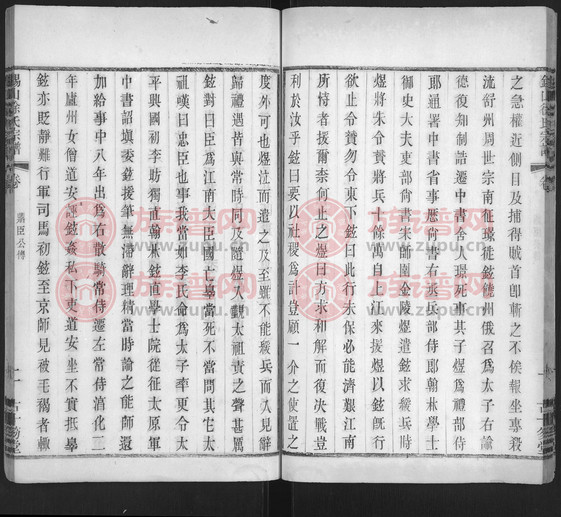 之急權近側目及捕得賊首即斬之不俟報坐專殺
流舒州周世宗南征璟徙鉉饒州俄召爲太子右諭
德復知制誥遷中書舍人璟死事其子煜爲禮部侍
郎通署中書省事歷尚書右丞兵部侍郎翰林學士
御史大夫吏部尚書宋師圍金陵煜遣鉉求緩兵時
煜將朱令贇將兵十餘萬自上江來援煜以鉉旣行
欲止令贇勿令東下鉉曰此行未保必能濟難江南
所恃者援爾奈何止之煜曰方求和解而復決戰豈
利於汝乎鉉曰要以社稷爲計豈顧一介之使置之
度外可也煜泣而遣之及至雖不能緩兵而入見辭
歸禮遇皆與常時同及隨煜入覲太祖責之聲甚厲
鉉對曰臣爲江南大臣國亡罪當死不當問其它太
祖嘆曰忠臣也事我當如李氏命爲太子率更令太
平興國初李昉獨
翰林鉉直學士院從征太原軍
中書詔塡委鉉援筆無滯辭理精當時論之能師還
加給事中八年出爲右散騎常侍遷左常侍淳化二
年廬州女僧道安誣鉉姦私下吏道安坐不實抵罪
鉉亦貶靜難行軍司馬初鉉至京師見被毛褐者輒
錫山徐氏宗譜
鼎臣公傳
族谱网
www.zupu.cn
族谱网
www.zupu.cn